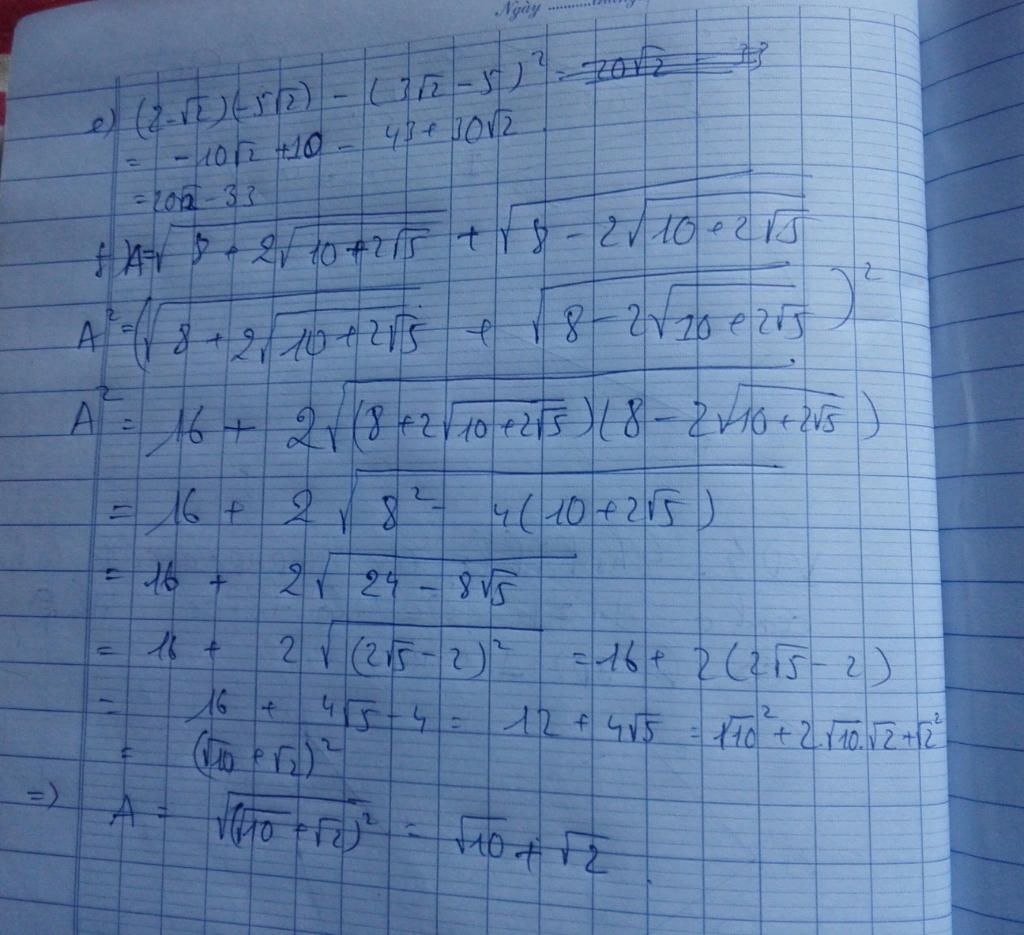 Ngày
e) (2-√2)(-5√2) - (3√2 - 5)² = 20√2 - 33
= -10√2 + 10 - 43 + 30√2
= 20√2 - 33
f) A = √(8 + 2√(10 + 2√5)) + √(8 - 2√(10 + 2√5))
A² = (√(8 + 2√(10 + 2√5)) + √(8 - 2√(10 + 2√5)))²
A² = 16 + 2√((8 + 2√(10 + 2√5))(8 - 2√(10 + 2√5)))
= 16 + 2√(8² - 4(10 + 2√5))
= 16 + 2√(24 - 8√5)
= 16 + 2√((2√5 - 2)²) = 16 + 2(2√5 - 2)
= 16 + 4√5 - 4 = 12 + 4√5 = √10² + 2.√10.√2 + √2²
= (√10 + √2)²
=> A = √((√10 + √2)²) = √10 + √2.